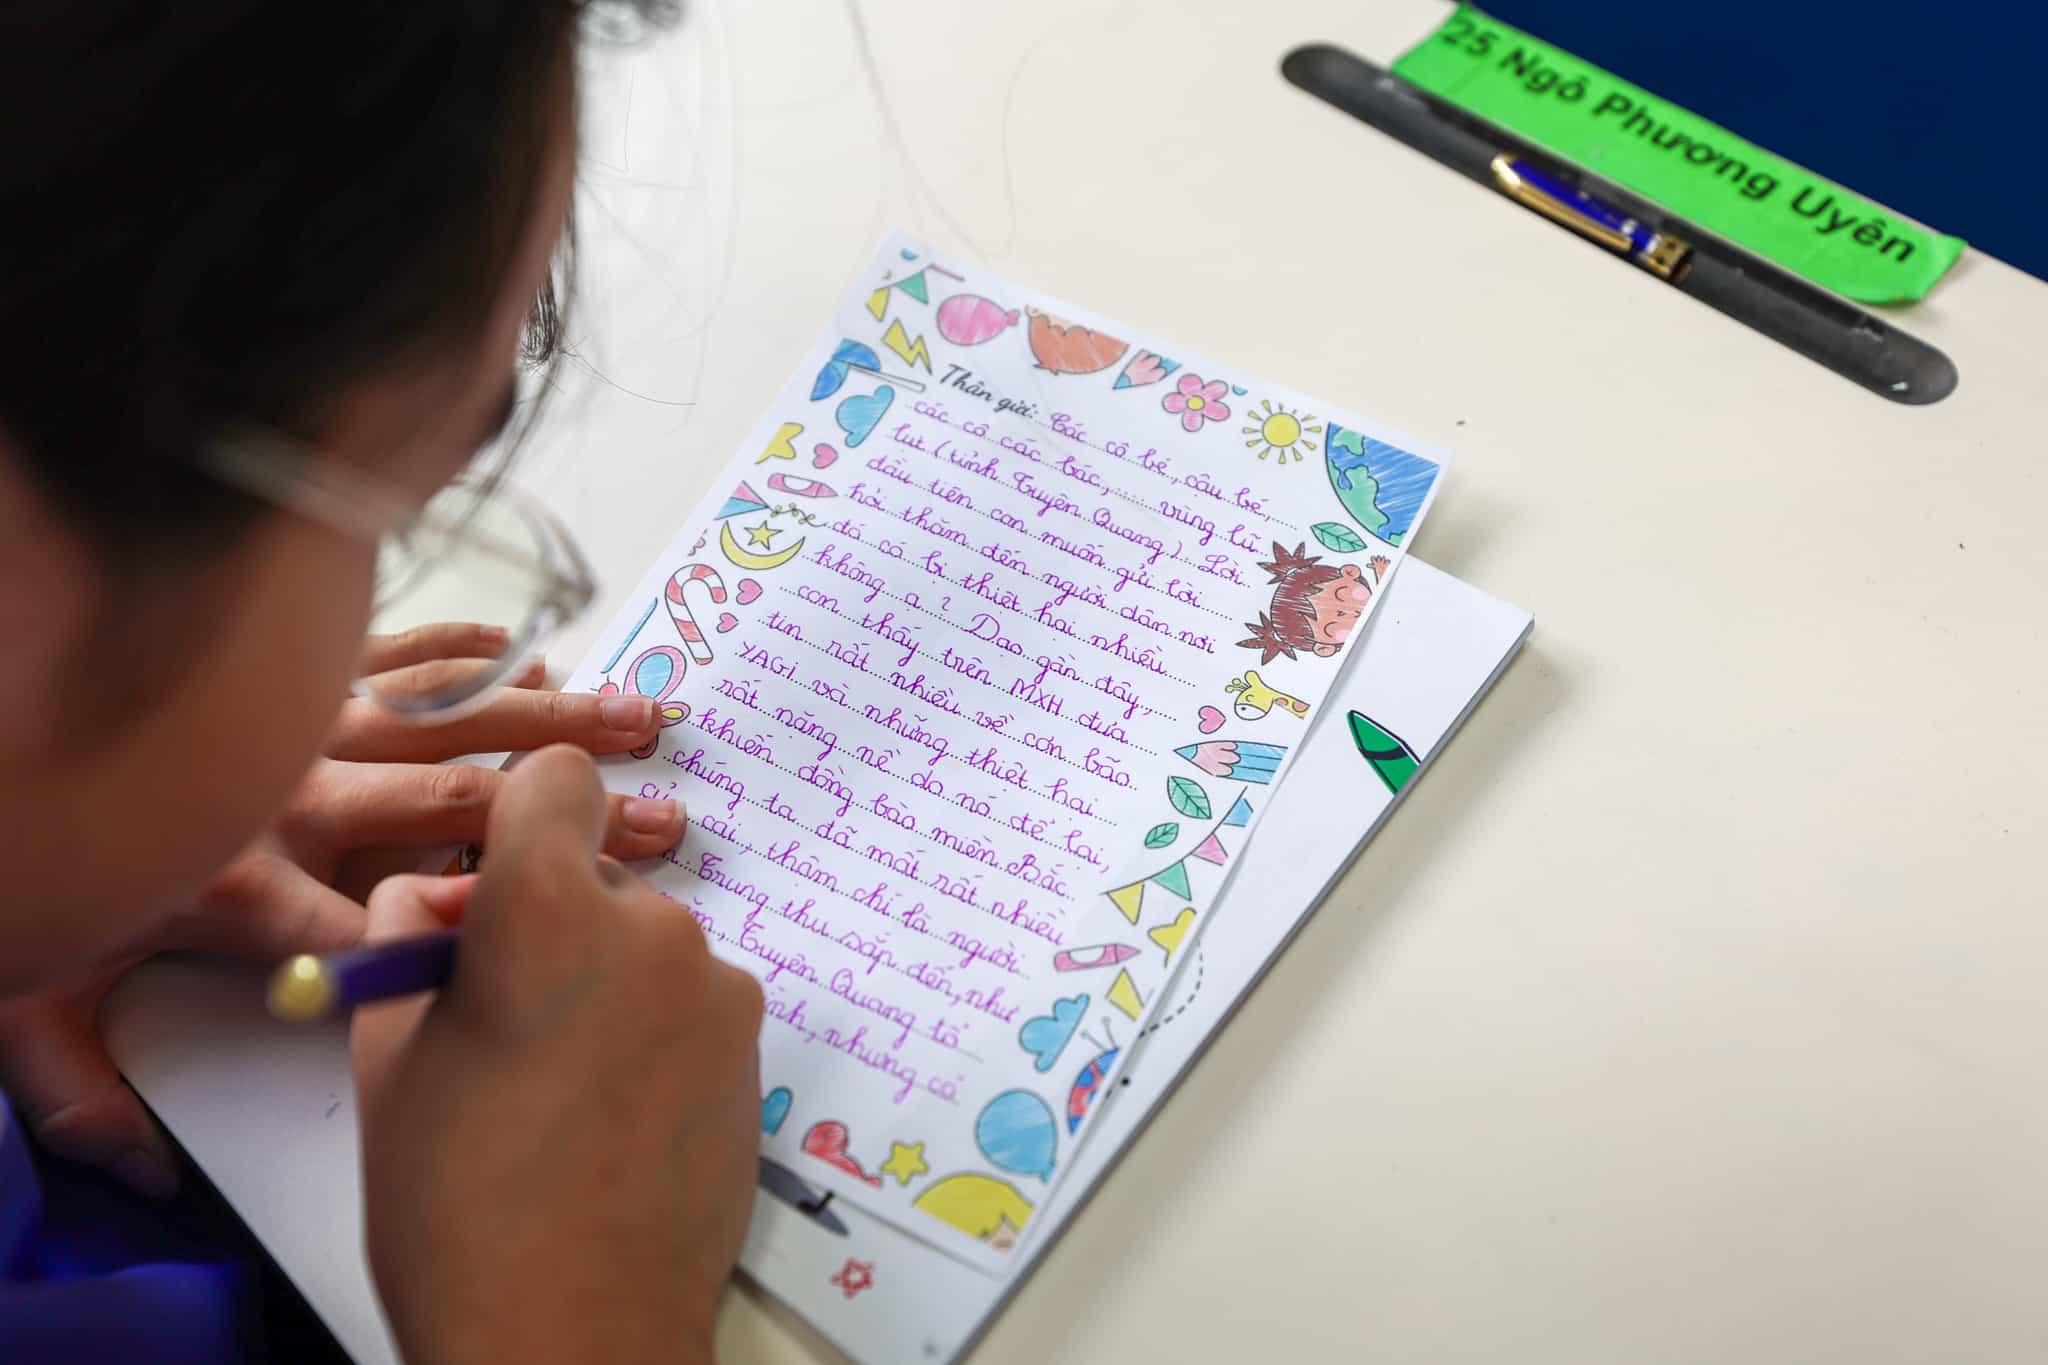 25 Ngô Phương Uyên
Thân gửi: Các cô bé, cậu bé,......
các cô các bác,...... vùng lũ
lụt (tỉnh Tuyên Quang). Lời
đầu tiên con muốn gửi lời
hỏi thăm đến người dân nơi
đó có bị thiệt hại nhiều
không ạ? Dạo gần đây,
con thấy trên MXH đưa
tin rất nhiều về cơn bão
YAGI và những thiệt hại
rất nặng nề do nó để lại,
khiến đồng bào miền Bắc
chúng ta đã mất rất nhiều
của cải, thậm chí là người
Trung thu sắp đến, như
năm, Tuyên Quang tổ
nhưng có